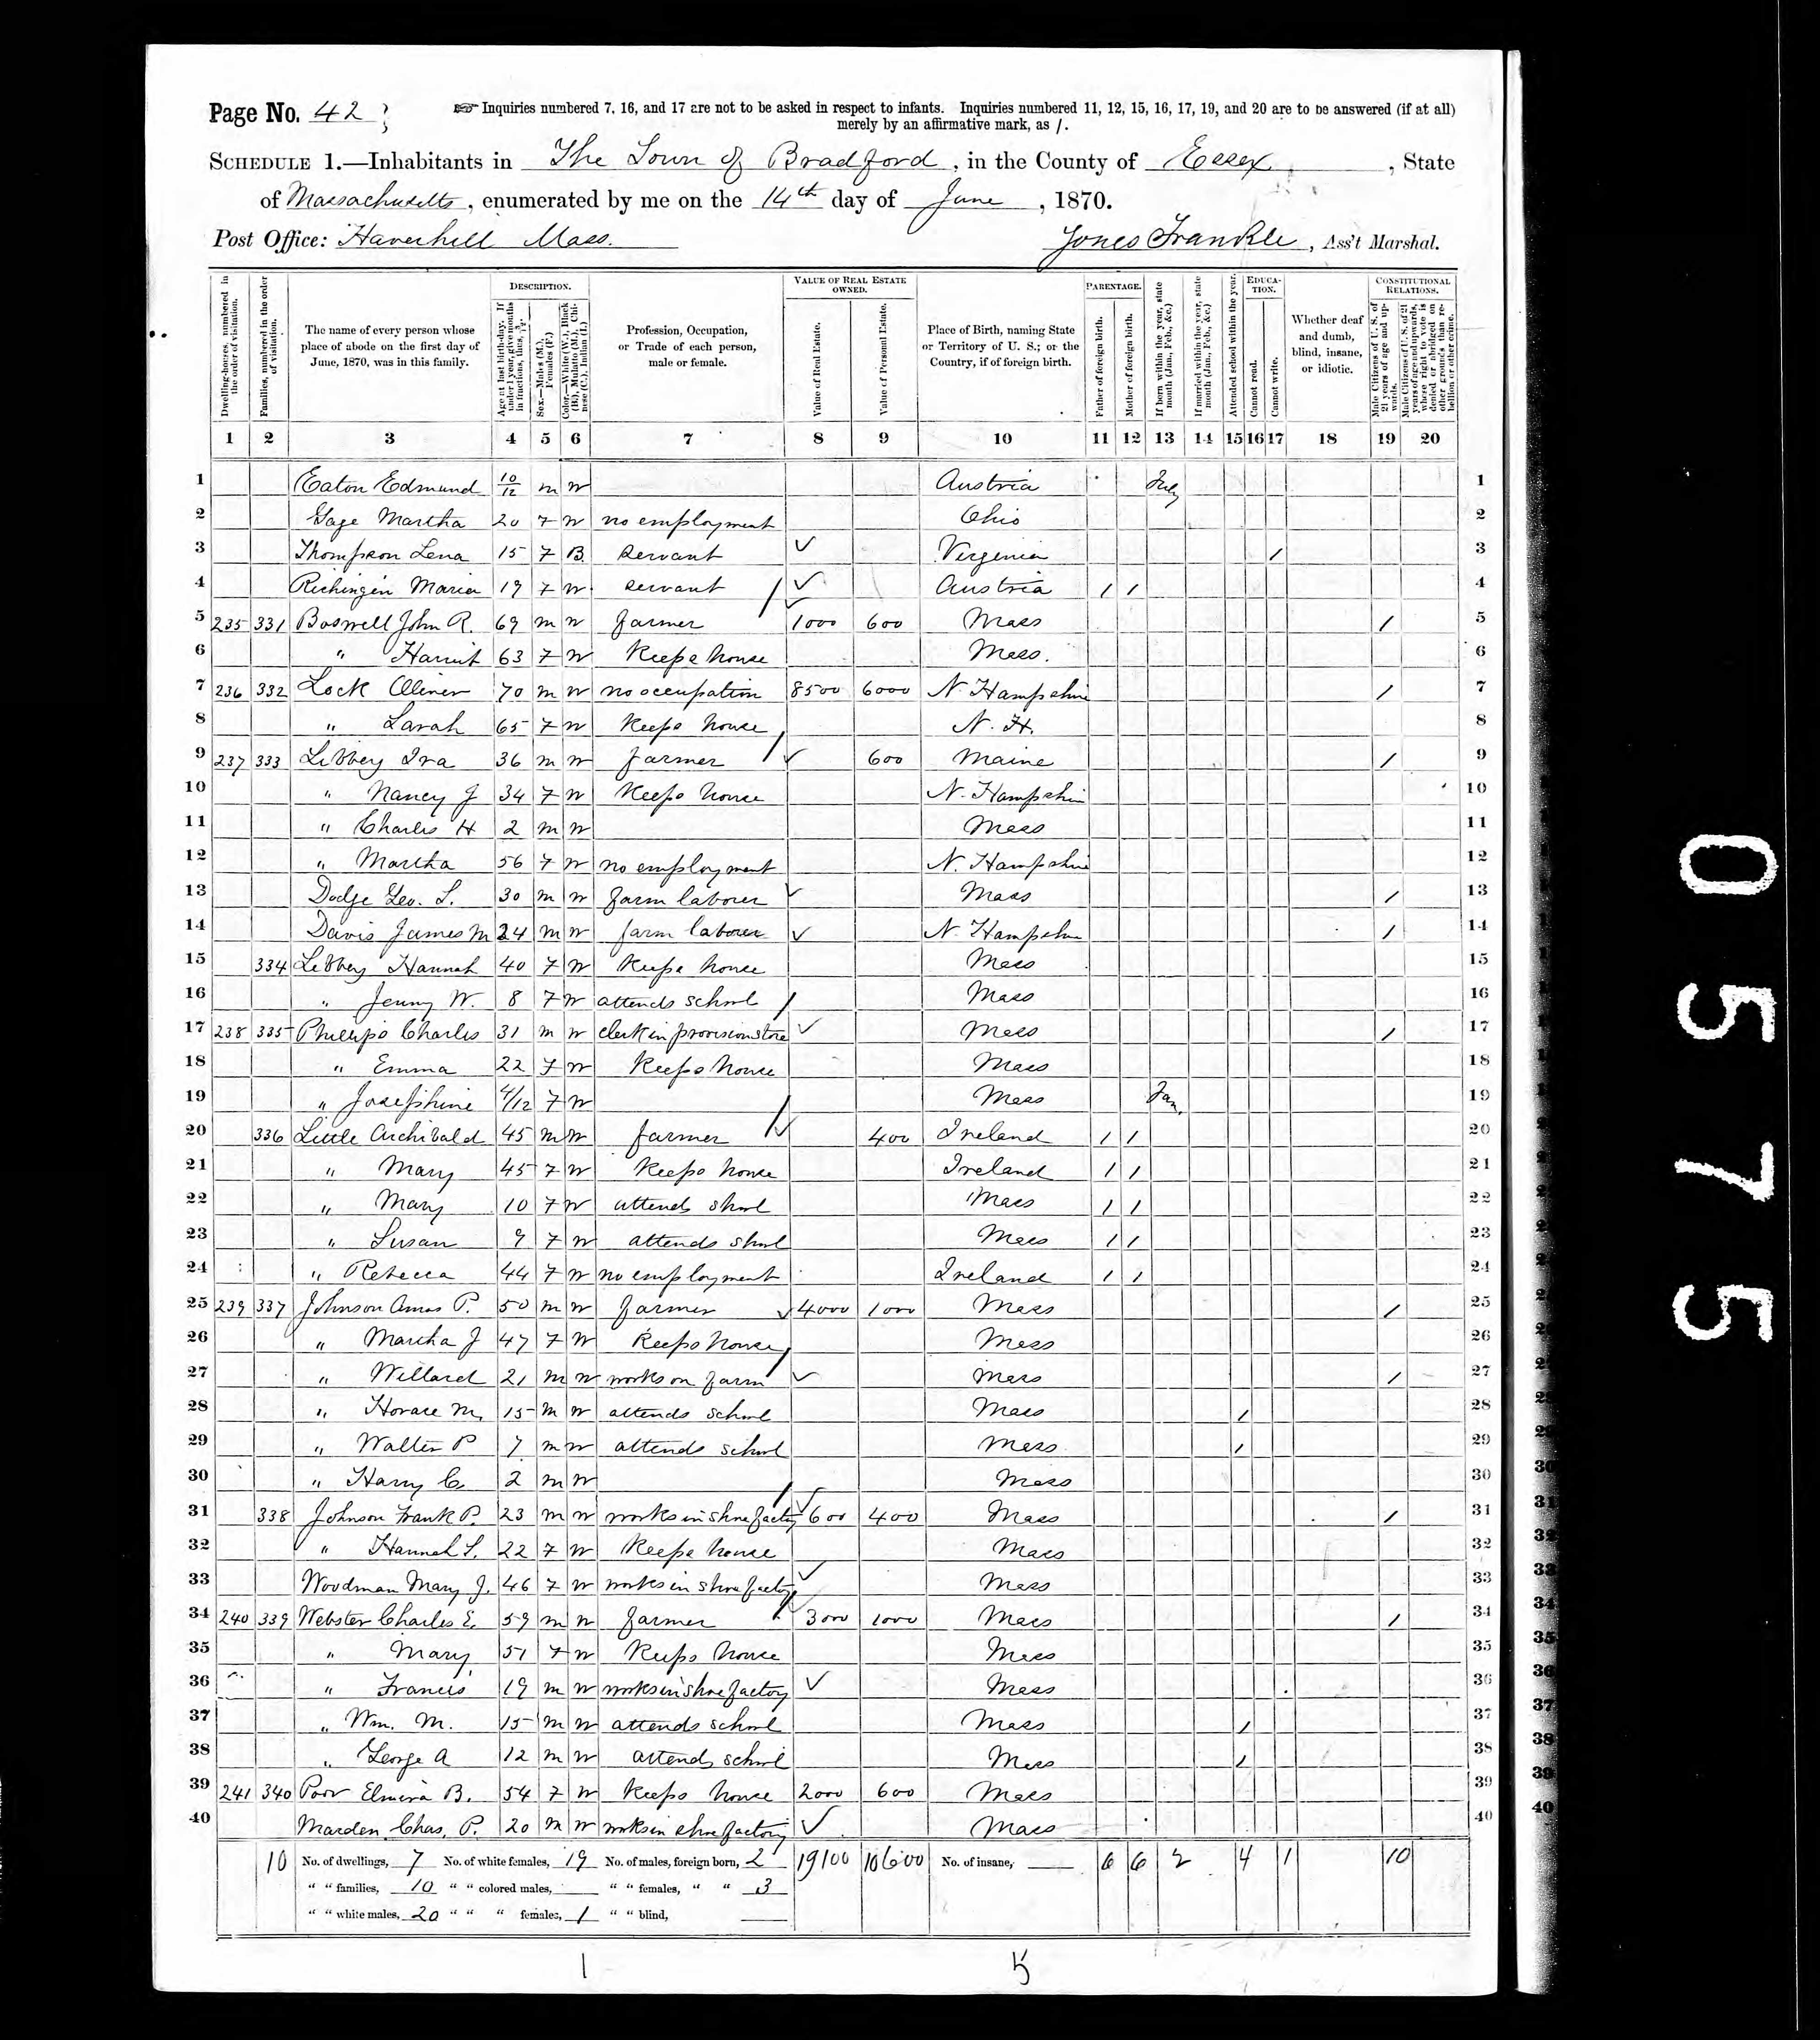 Page No. 42
☞ Inquiries numbered 7, 16, and 17 are not to be asked in respect to infants. Inquiries numbered 11, 12, 15, 16, 17, 19, and 20 are to be answered (if at all)
merely by an affirmative mark, as /.
SCHEDULE 1.—Inhabitants in The Town of Bradford, in the County of Essex, State
of Massachusetts, enumerated by me on the 14th day of June, 1870.
Post Office: Haverhill Mass. Jones Frankle, Ass't Marshal.
Dwelling-houses, numbered in the order of visitation.
Families, numbered in the order of visitation.
The name of every person whose place of abode on the first day of June, 1870, was in this family.
DESCRIPTION.
Age at last birth-day. If under 1 year, give months in fractions, thus, 3/12.
Sex.—Males (M.), Females (F.)
Color.—White (W.), Black (B.), Mulatto (M.), Chinese (C.), Indian (I.)
Profession, Occupation, or Trade of each person, male or female.
VALUE OF REAL ESTATE OWNED.
Value of Real Estate.
Value of Personal Estate.
Place of Birth, naming State or Territory of U. S.; or the Country, if of foreign birth.
PARENTAGE.
Father of foreign birth.
Mother of foreign birth.
If born within the year, state month (Jan., Feb., &c.)
If married within the year, state month (Jan., Feb., &c.)
Attended school within the year.
EDUCATION.
Cannot read.
Cannot write.
Whether deaf and dumb, blind, insane, or idiotic.
CONSTITUTIONAL RELATIONS.
Male Citizens of U. S. of 21 years of age and upwards.
Male Citizens of U. S. of 21 years of age and upwards, whose right to vote is denied or abridged on other grounds than rebellion or other crime.
1 2 3 4 5 6 7 8 9 10 11 12 13 14 15 16 17 18 19 20
1 Eaton Edmund 10/12 m W Austria July 1
2 Gage Martha 20 F W no employment Ohio 2
3 Thompson Lena 15 F B. servant ✓ Virginia / 3
4 Maria 19 F W servant ✓ Austria / / 4
5 235 331 Boswell John R. 69 m W farmer ✓ 1000 600 Mass / 5
6 " Harriet 63 F W Keeps house Mass. 6
7 236 332 Lock Oliver 70 m W no occupation 8500 6000 N. Hampshire / 7
8 " Sarah 65 F W Keeps house N. H. 8
9 237 333 Libbey Ira 36 m W farmer ✓ 600 Maine / 9
10 " Nancy J 34 F W Keeps house N. Hampshire 10
11 " Charles H 2 m W Mass 11
12 " Martha 56 F W no employment N. Hampshire 12
13 Dodge Geo. S. 30 m W farm laborer ✓ Mass / 13
14 Davis James M 24 m W farm laborer ✓ N. Hampshire / 14
15 334 Libbey Hannah 40 F W Keeps house Mass 15
16 " Jenny W. 8 F W attends school Mass 16
17 238 335 Phillips Charles 31 m W clerk in provision store ✓ Mass / 17
18 " Emma 22 F W Keeps house Mass 18
19 " Josephine 4/12 F W Mass Jan. 19
20 336 Little Archibald 45 m W farmer ✓ 400 Ireland / / 20
21 " Mary 45 F W Keeps house Ireland / / 21
22 " Mary 10 F W attends school Mass / / 22
23 " Susan 9 F W attends school Mass / / 23
24 " Rebecca 44 F W no employment Ireland / / 24
25 239 337 Johnson Amos P. 50 m W farmer ✓ 4000 1000 Mass / 25
26 " Martha J 47 F W Keeps house Mass 26
27 " Willard 21 m W works on farm ✓ Mass / 27
28 " Horace M. 15 m W attends school Mass / 28
29 " Walter P 7 m W attends school Mass / 29
30 " Harry C. 2 m W Mass 30
31 338 Johnson Frank P. 23 m W works in shoe factory ✓ 600 400 Mass / 31
32 " Hannah S. 22 F W Keeps house Mass 32
33 Woodman Mary J. 46 F W works in shoe factory ✓ Mass 33
34 240 339 Webster Charles E. 59 m W farmer ✓ 3000 1000 Mass / 34
35 " Mary 51 F W Keeps house Mass 35
36 " Francis 19 m W works in shoe factory ✓ Mass 36
37 " Wm. M. 15 m W attends school Mass / 37
38 " George A 12 m W attends school Mass / 38
39 241 340 Poor Elmira B. 54 F W Keeps house 2000 600 Mass 39
40 Marden Chas. P. 20 m W works in shoe factory ✓ Mass 40
10 No. of dwellings, 7 No. of white females, 19 No. of males, foreign born, 2 19100 10600 No. of insane, 6 6 2 4 1 10
" " families, 10 " " colored males, " " females, " " 3
" " white males, 20 " " " females, 1 " " blind,
1 5
0575